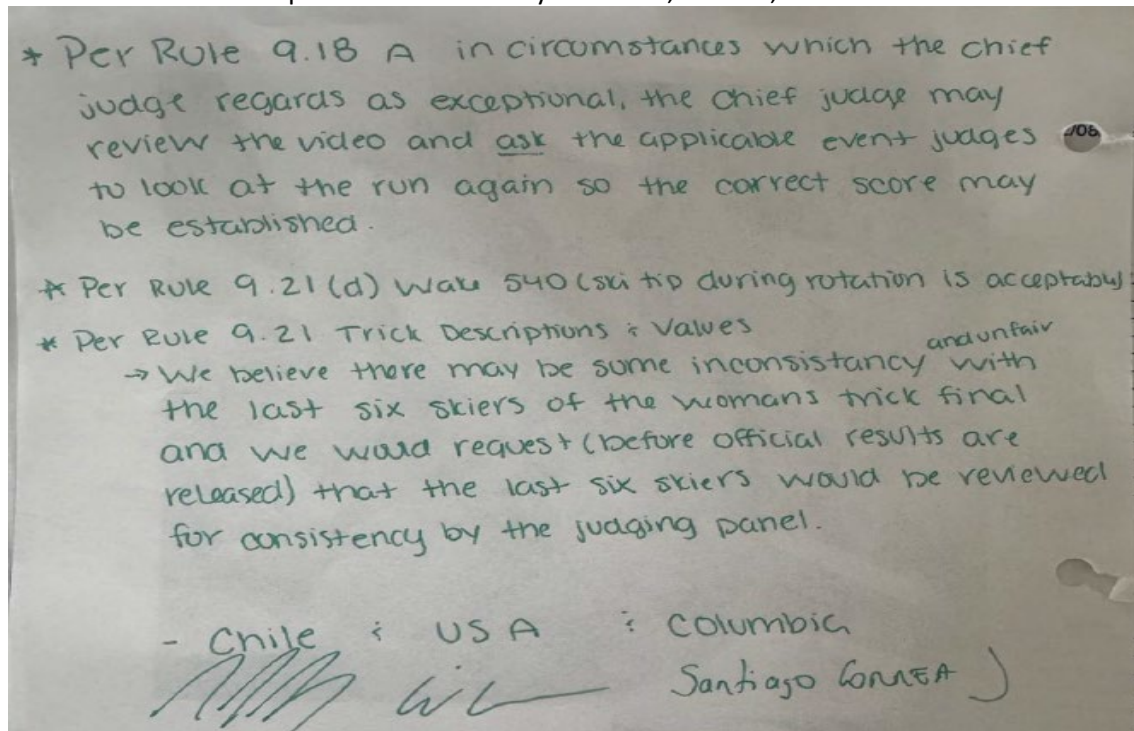 * Per Rule 9.18 A in circumstances which the chief
judge regards as exceptional, the chief judge may
review the video and ask the applicable event judges
to look at the run again so the correct score may
be established.
* Per Rule 9.21 (d) Wake 540 (ski tip during rotation is acceptably)
* Per Rule 9.21 Trick Descriptions & Values
and unfair
→ We believe there may be some inconsistancy with
the last six skiers of the womans trick final
and we would request (before official results are
released) that the last six skiers would be reviewed
for consistency by the judging panel.
- Chile & USA & Columbia
Santiago CORREA